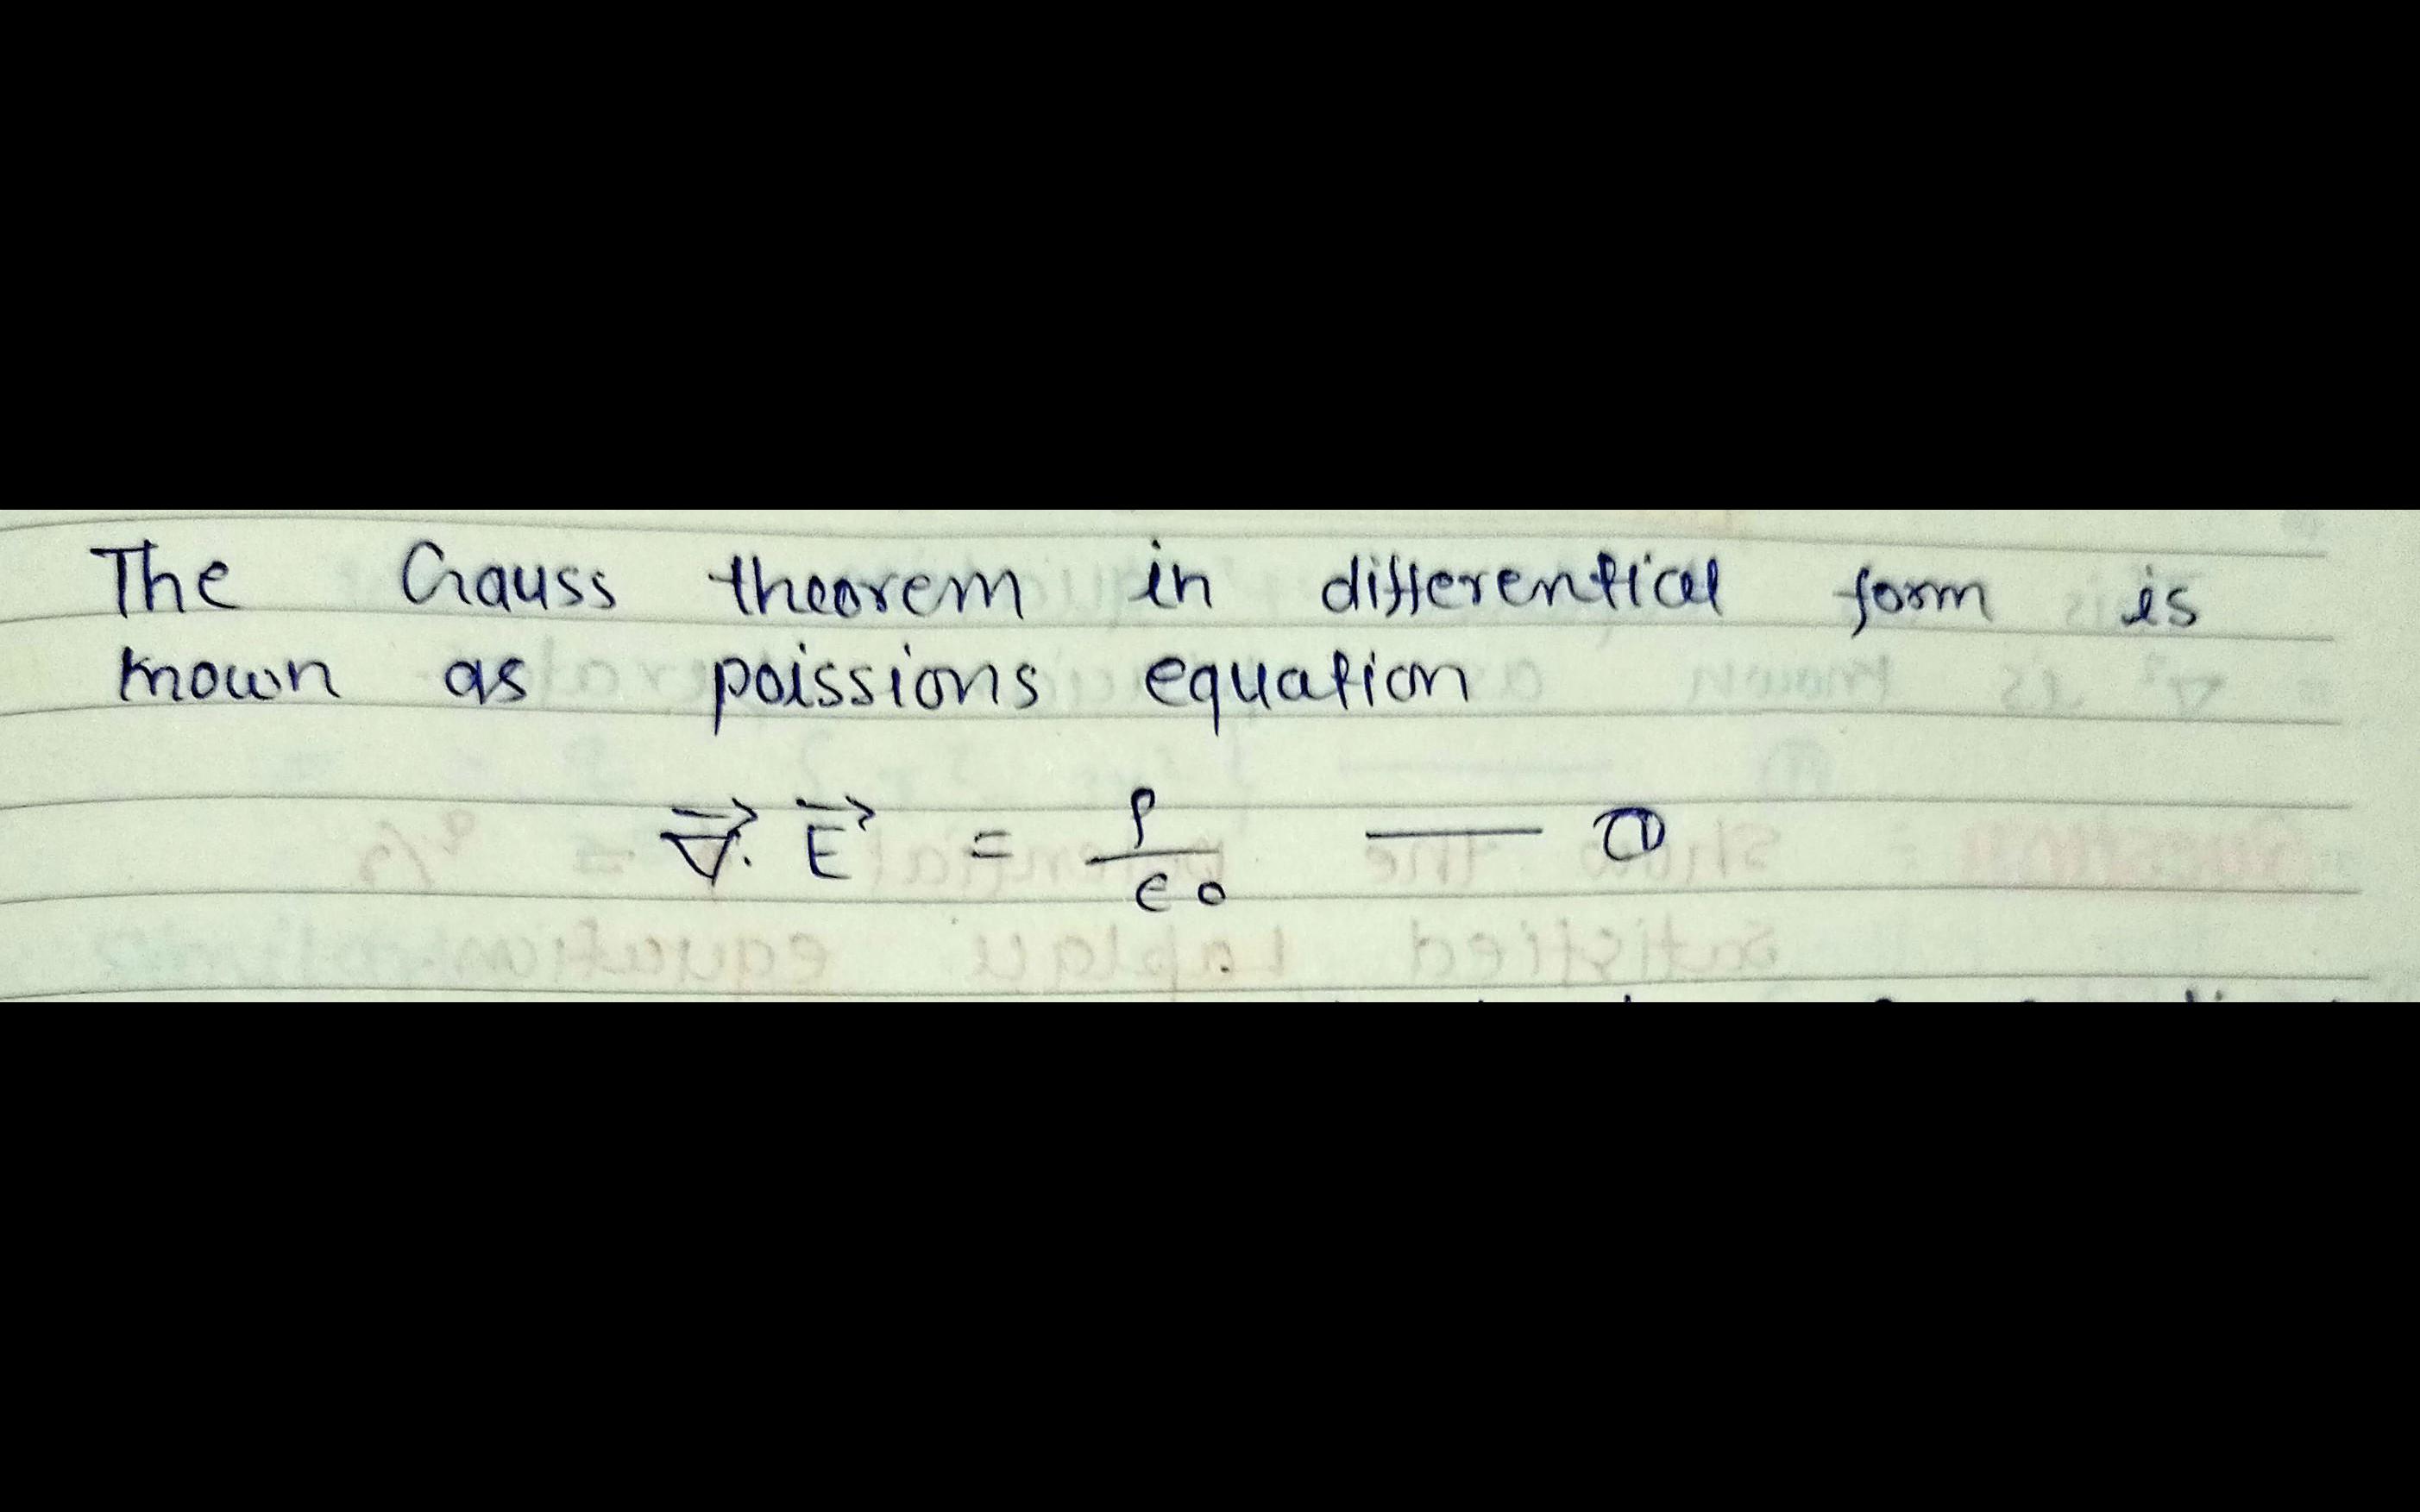 The Gauss theorem in differential form is
known as poissions equation
∇⃗. E⃗ = ρ/ϵ₀ —— ①